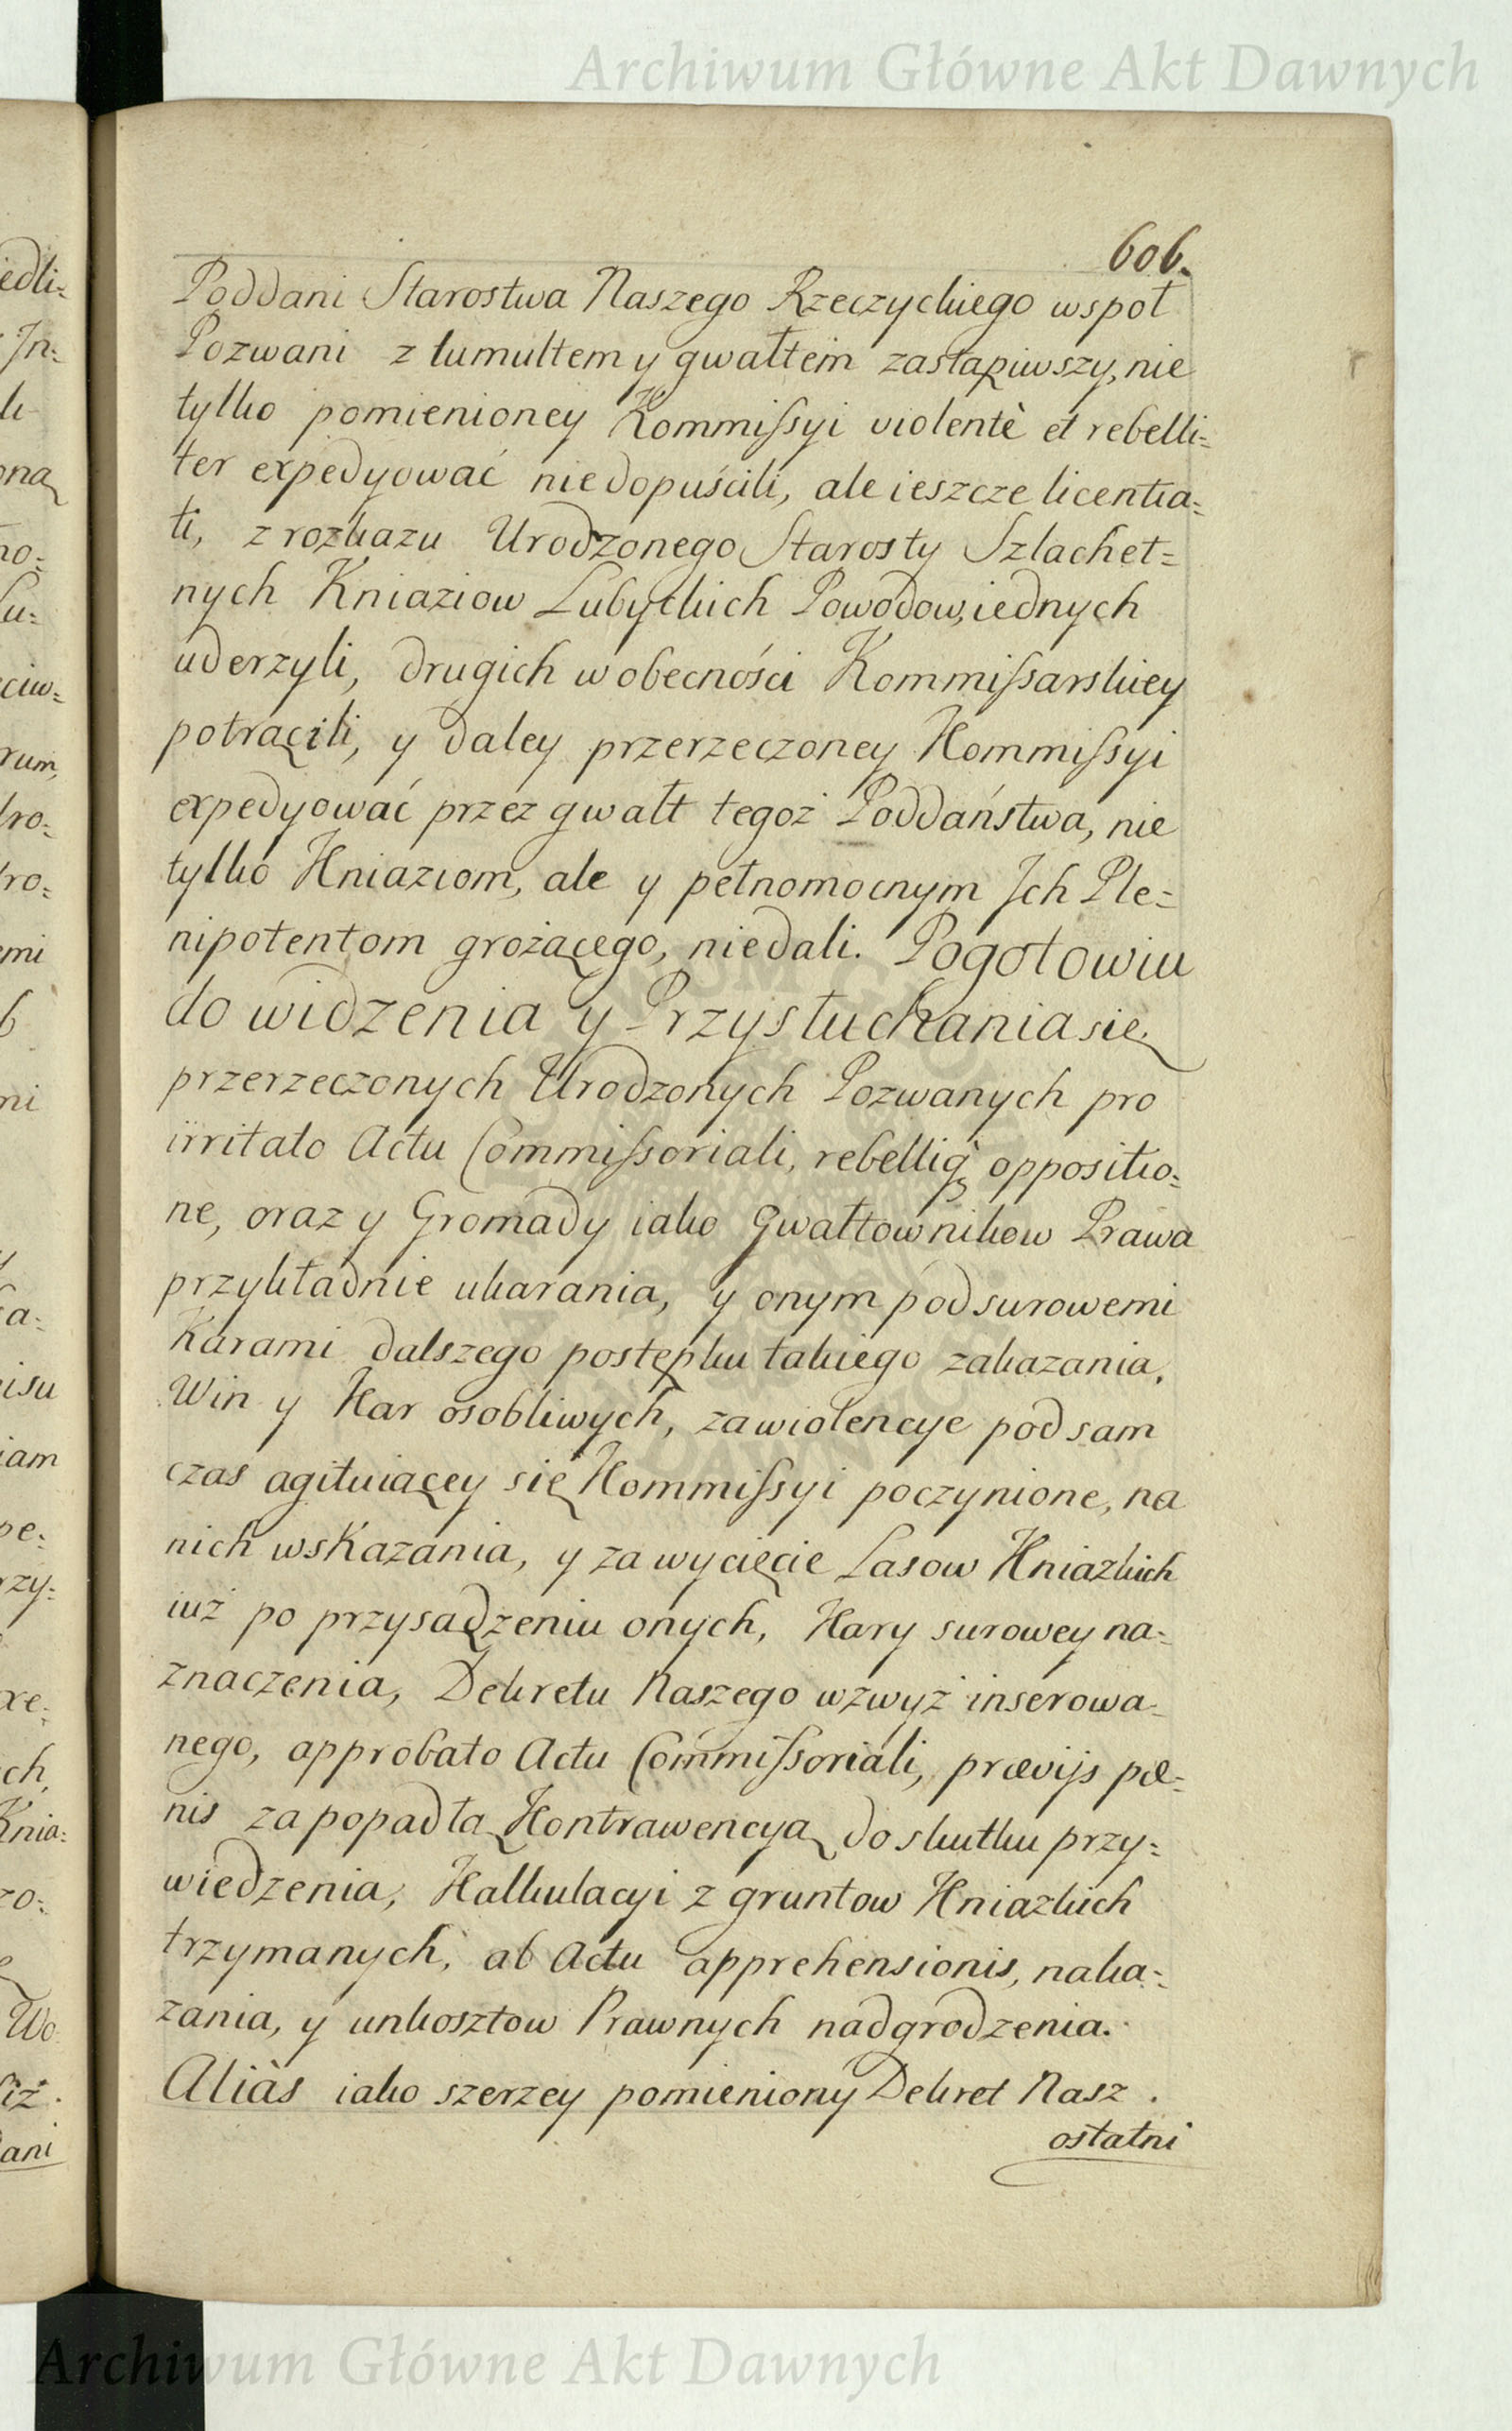 Archiwum Główne Akt Dawnych
606.
Poddani Starostwa Naszego Rzeczyckiego wspoł
Pozwani z tumultem y gwałtem zastąpiwszy, nie
tylko pomienioney Kommissyi violentè et rebelli=
ter expedyować niedopuścili, ale ieszcze licentia=
ti, z rozkazu Urodzonego Starosty Szlachet=
nych Kniaziow Lubyckich Powodow, iednych
uderzyli, drugich w obecności Kommissarskiey
potrącili, y daley przerzeczoney Kommissyi
expedyować przez gwałt tegoż Poddaństwa, nie
tylko Kniaziom, ale y pełnomocnym Jch Ple=
nipotentom grożącego, niedali. Pogotowiu
do widzenia y Przysłuchania się
przerzeczonych Urodzonych Pozwanych pro
irritato Actu Commissoriali, rebelliq̀ꝫ oppositio=
ne, oraz y Gromady iako Gwałtownikow Prawa
przykładnie ukarania, y onym pod surowemi
Karami dalszego postępku takiego zakazania,
Win y Kar osobliwych, za wiolencye pod sam
czas agituiącey się Kommissyi poczynione, na
nich wskazania, y za wycięcie Lasow Kniazkich
iuż po przysądzeniu onych, Kary surowey na=
znaczenia, Dekretu Naszego wzwyż inserowa=
nego, approbato Actu Commissoriali, prævijs pæ=
nis za popadłą Kontrawencyą do skutku przy=
wiedzenia, Kalkulacyi z gruntow Kniazkich
trzymanych, ab Actu apprehensionis, naka=
zania, y unkosztow Prawnych nadgrodzenia.
Aliàs iako szerzey pomieniony Dekret Nasz.
ostatni
Archiwum Główne Akt Dawnych